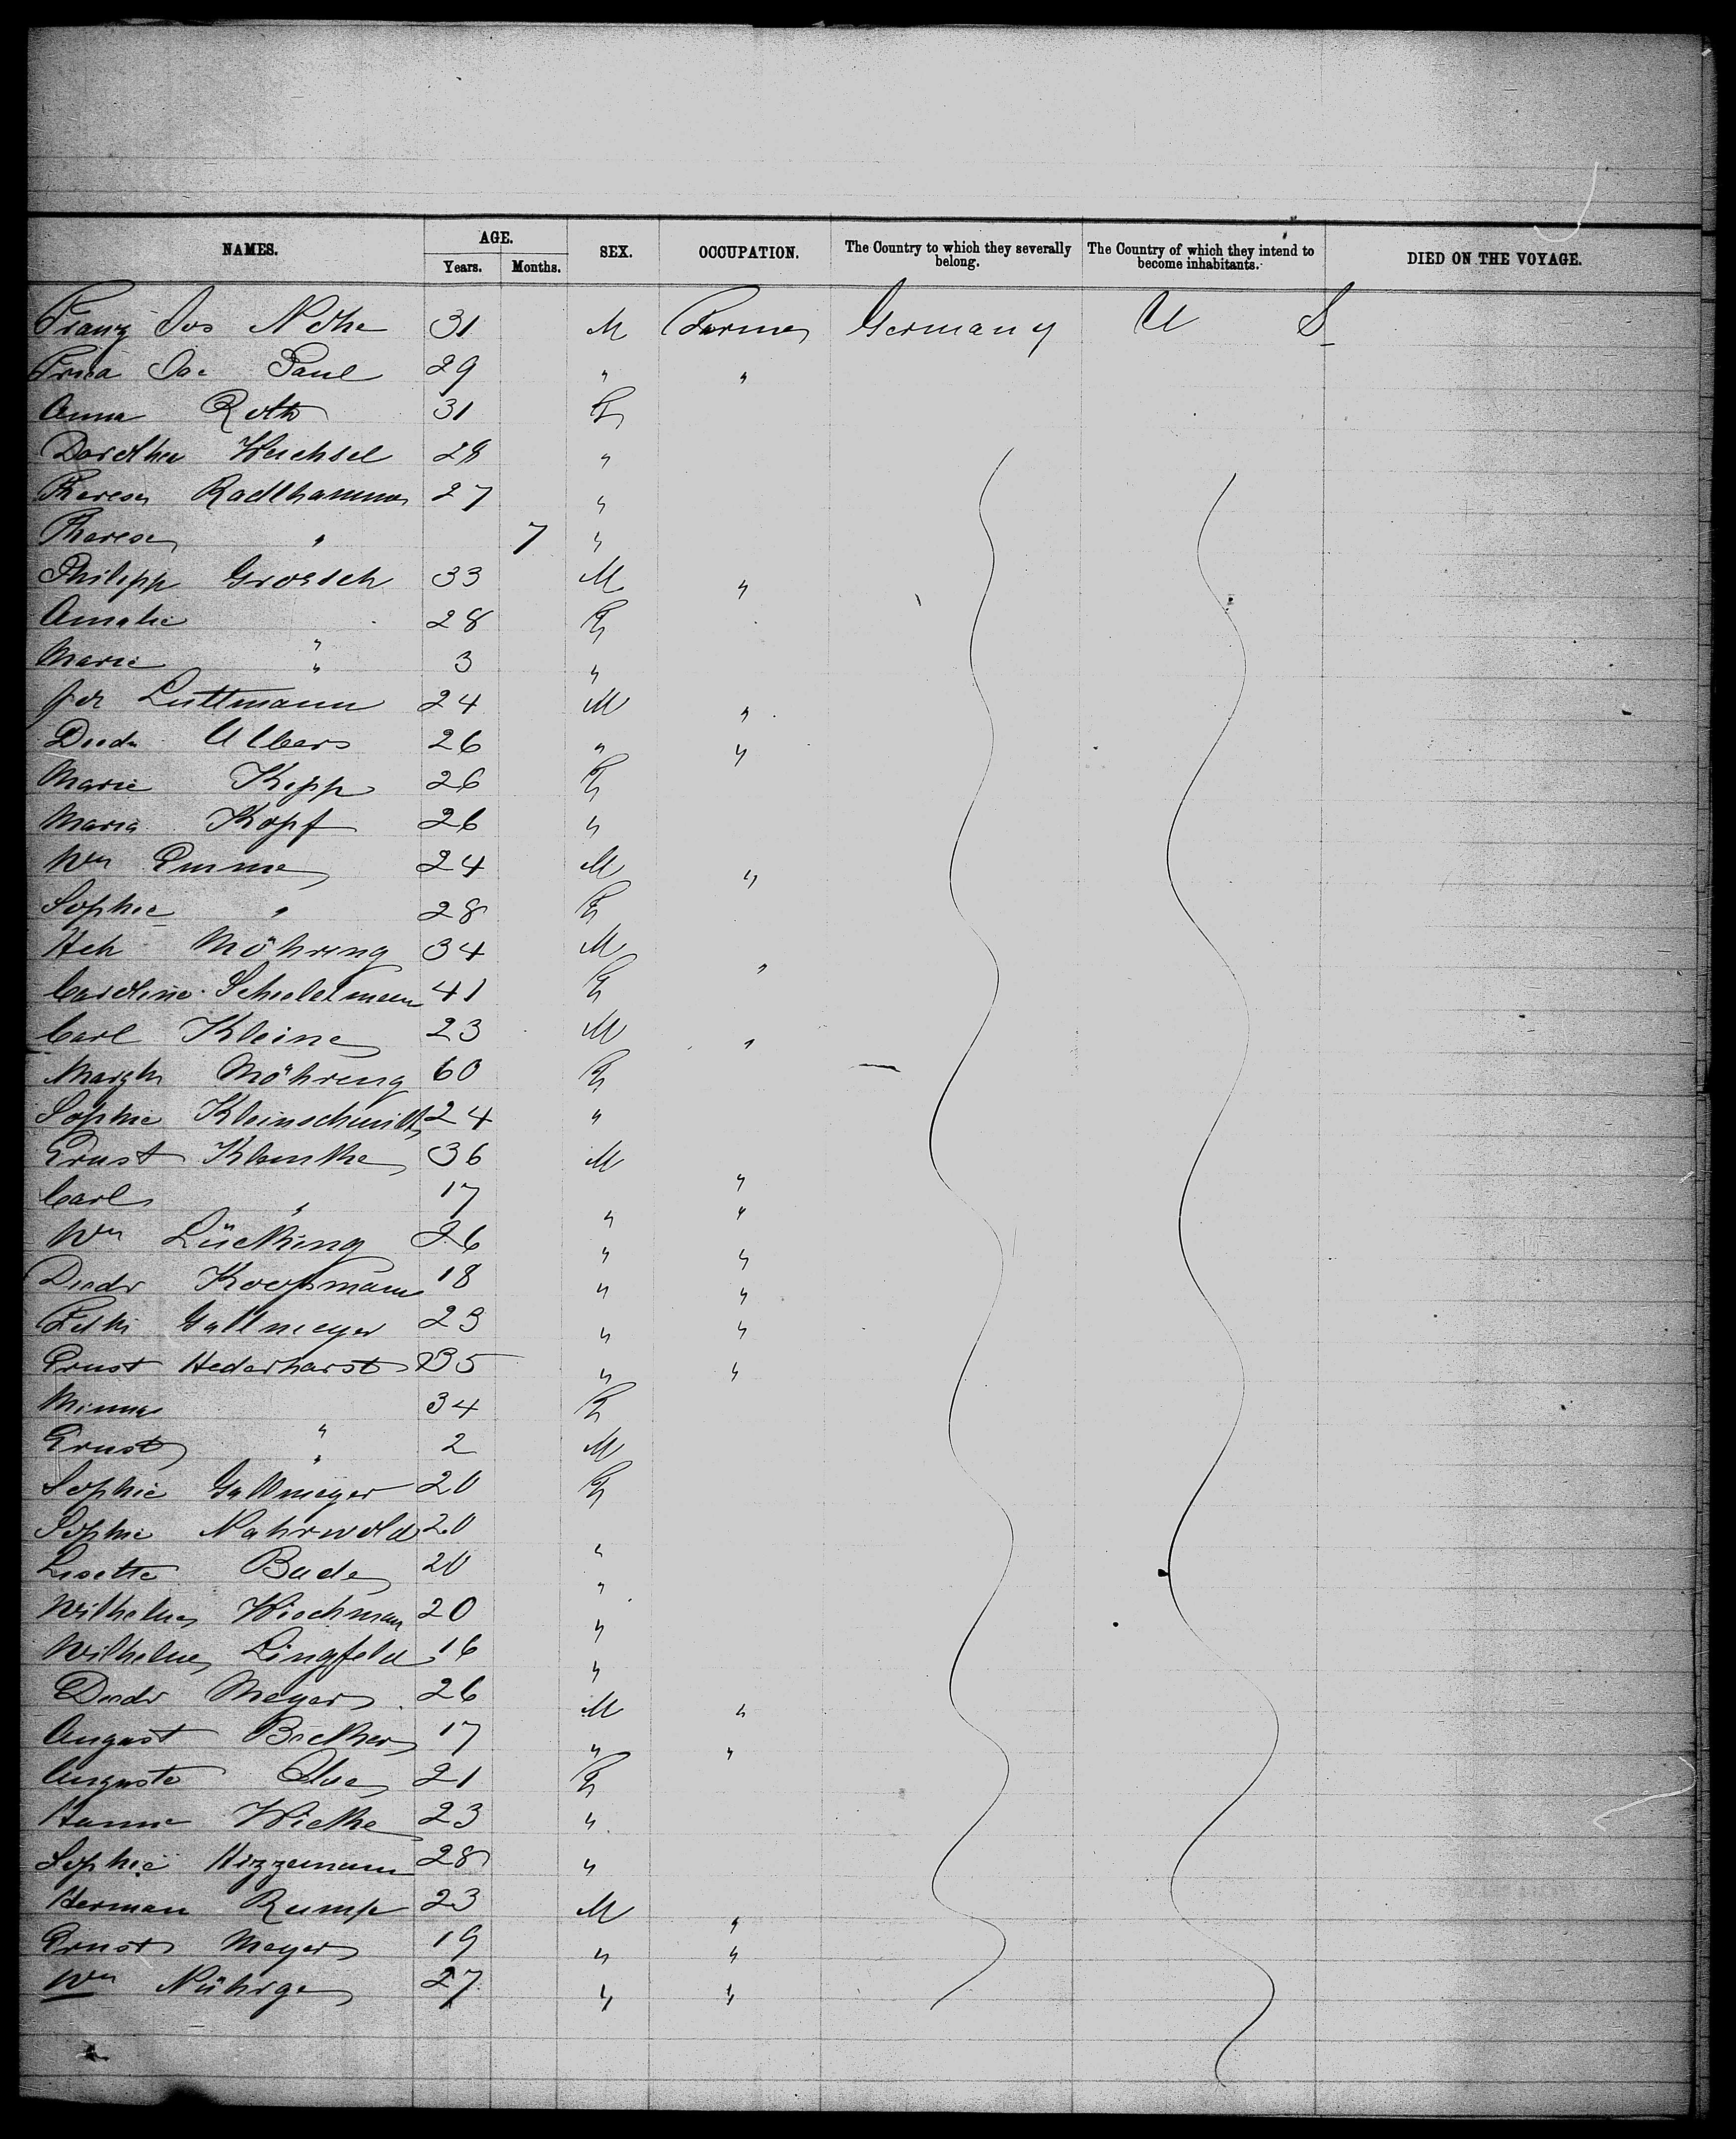 NAMES. AGE. SEX. OCCUPATION. The Country to which they severally belong. The Country of which they intend to become inhabitants. DIED ON THE VOYAGE.
Years. Months.
Franz Jos 31 M Farmer Germany U S
Paul 29 " "
Anna Roth 31 F
Dorothea Weichsel 28 "
Theresa Radlhammer 27 "
Theresa " 7 "
Philipp Grossch 33 M "
Amalie " 28 F
Marie " 3 "
Luttmann 24 M "
Diedr Albers 26 " "
Marie Kipp 26 F
Maria Kopf 26 "
Wm Emme 24 M "
Sophie " 28 F
Hch Möhring 34 M "
Caroline 41 F
Carl Kleine 23 M "
Margh Möhring 60 F
Sophie Kleinschmidt 24 "
Ernst 36 M "
Carl " 17 " "
Wm Lücking 26 " "
Diedr Koopmann 18 " "
Gallmeyer 23 " "
Ernst Hederhorst 35 " "
Minna " 34 F
Ernst " 2 M
Sophie Gallmeyer 20 F
Sophie Nahrwold 20 "
Lisette Bade 20 "
Wilhelme Wiechman 20 "
Wilhelme Lingfeld 16 "
Diedr Meyer 26 M "
August 17 " "
Auguste 21 F
Hanne Wielke 23 "
Sophie Hizzemann 28 "
Herman Rump 23 M "
Ernst Meyer 19 " "
Wm Nührge 27 " "